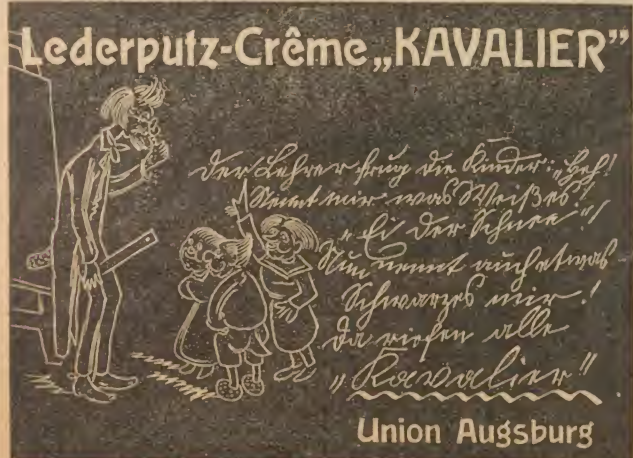 Lederputz-Crême „KAVALIER”
Der Lehrer frug die Kinder: „Heh!
Nennt mir was Weißes!
„Ei der Schnee”!
Nun nennt auch etwas
Schwarzes mir!
Da riefen alle
„Kavalier”
Union Augsburg